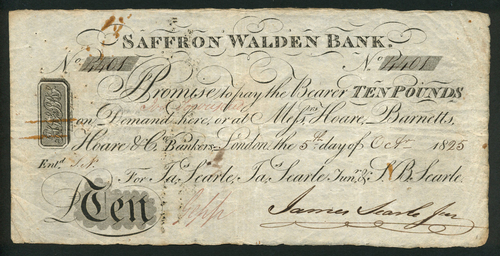 SAFFRON WALDEN BANK.
No. 4401 No. 4401
I Promise to pay the Bearer TEN POUNDS
on Demand here, or at Messrs. Hoare, Barnetts,
Hoare & Co. Bankers London the 5th day of Octr. 1825
Entd. J.S. For Jas. Searle, Jas. Searle Junr. & S.B. Searle.
£Ten
James Searle Jun